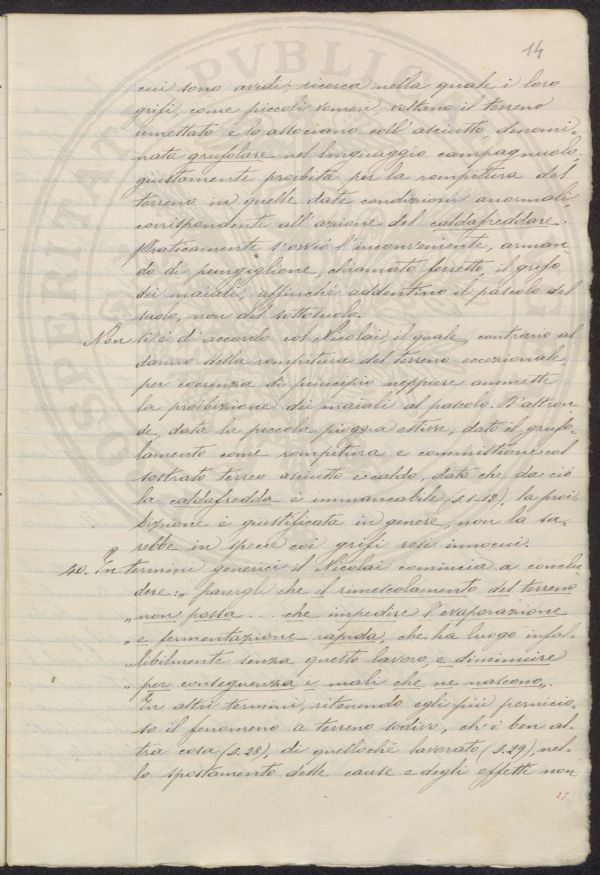 14
cui sono avidi; ricerca nella quale i loro
grifi, come piccoli vomeri, voltano il terreno
umettato e lo associano coll'asciutto, denomi-
nata grufolare nel linguaggio campagnuolo,
giustamente proibita per la rompitura del
terreno in quelle date condizioni anormali,
corrispondente all'azione del caldafreddare.
Praticamente s'ovviò l'inconveniente, arman-
do di pungiglione, chiamato ferretto, il grifo
dei maiali, affinchè addentino il pascolo del
suolo, non del sottosuolo.
Non si è d'accordo col Nicolai, il quale, contrario al
danno della rompitura del terreno eccezionale,
per coerenza di principio neppure ammette
la proibizione dei maiali al pascolo. D'altron-
de, data la piccola pioggia estiva, dato il grufo-
lamento come rompitura e commistione col
sostrato terreo asciutto e caldo, dato che da ciò
la caldafredda è immancabile (§. 1-12), la proi-
bizione è giustificata in genere, non la sa-
rebbe in specie coi grifi resi innocui.
40. In termini generici il Nicolai comincia a conclu-
dere: „ parergli che il rimescolamento del terreno
„ non possa .... che impedire l'evaporazione
„ e fermentazione rapida, che ha luogo infal-
„ libilmente senza questo lavoro, e diminuire
„ per conseguenza i mali che ne nascono„.
In altri termini, ritenendo egli più pernicio-
so il fenomeno a terreno sodivo, ch'è ben al-
tra cosa (§. 28), di quellochè lavorato (§. 29), nel-
lo spostamento delle cause e degli effetti non
27
PVBLIC
OSPERITAT